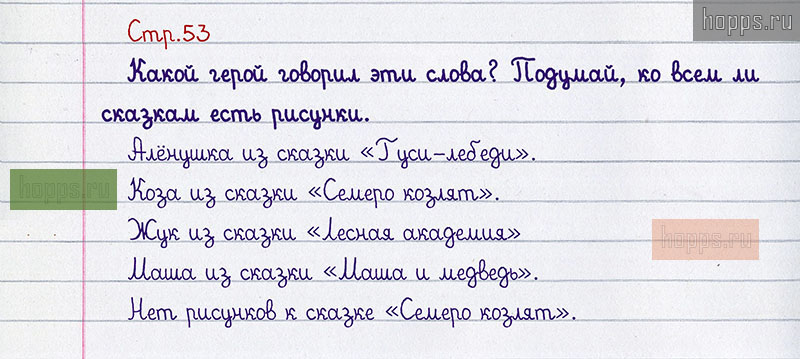 hopps.ru
Стр.53
Какой герой говорил эти слова? Подумай, ко всем ли
сказкам есть рисунки.
Алёнушка из сказки «Гуси-лебеди».
hopps.ru
Коза из сказки «Семеро козлят».
Жук из сказки «Лесная академия»
hopps.ru
Маша из сказки «Маша и медведь».
Нет рисунков к сказке «Семеро козлят».